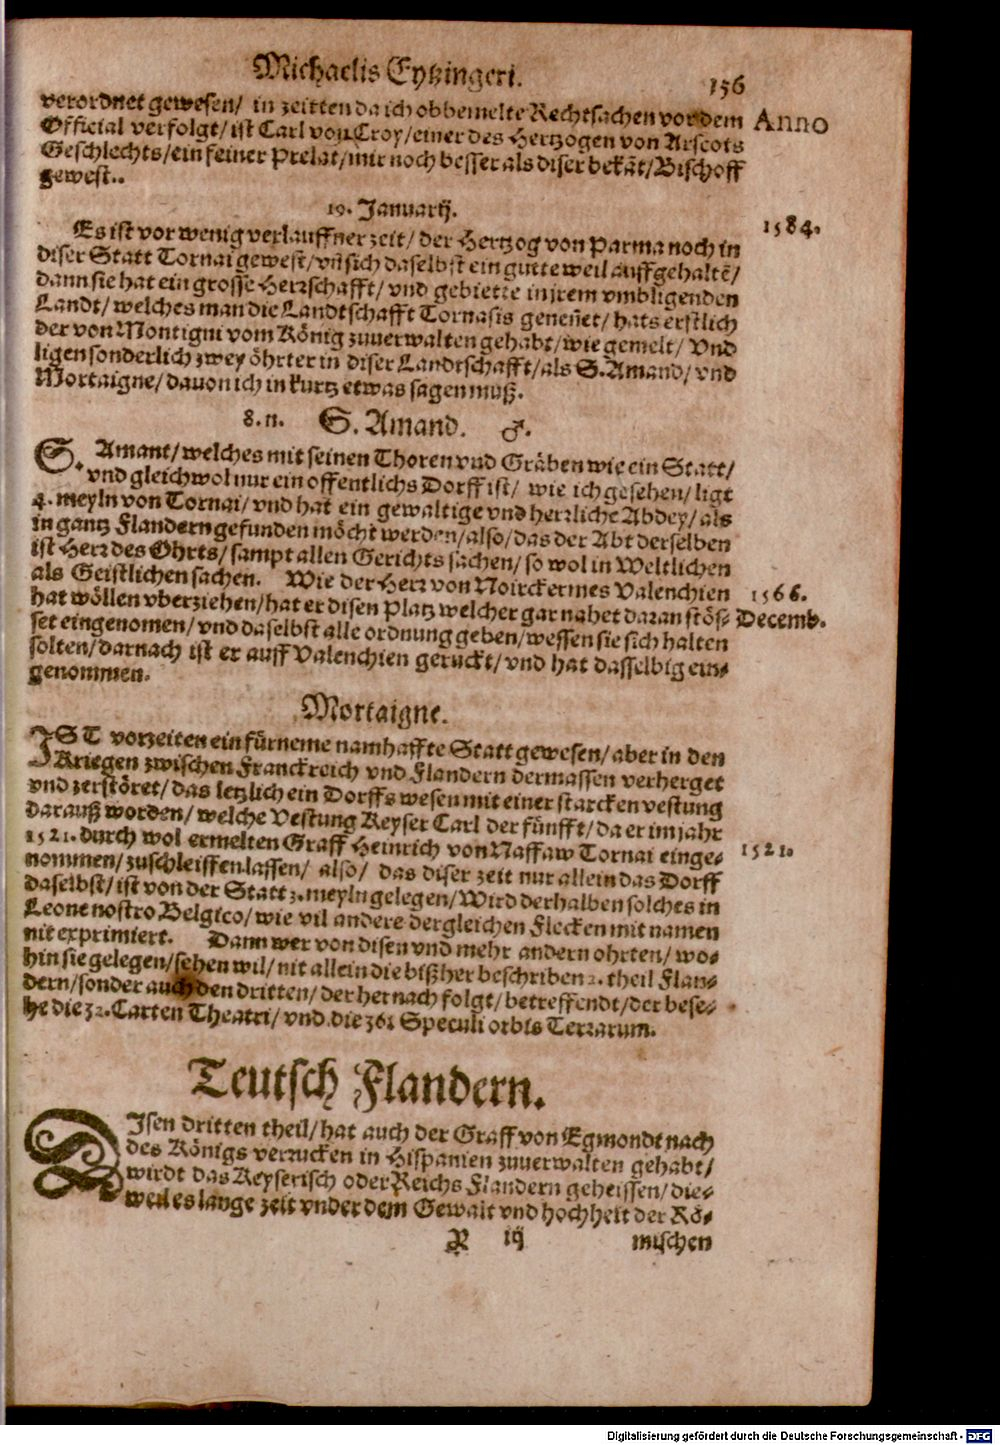 Michaelis Eytzingeri. 156
verordnet gewesen/ in zeitten da ich obbemelte Rechtsachen vor dem
Official verfolgt/ ist Carl von Croy/ einer des Hertzogen von Arscots
Geschlechts/ ein feiner Prelat/ mir noch besser als diser bekãt/ Bischoff
gewest..
Anno
19. Januarij.
1584.
Es ist vor wenig verlauffner zeit/ der Hertzog von Parma noch in
diser Statt Tornai gewest/ vñ sich daselbst ein gutte weil auffgehaltẽ/
dann sie hat ein grosse Herrschafft/ vnd gebiette in jrem vmbligenden
Landt/ welches man die Landtschafft Tornasis geneñet/ hats erstlich
der von Montigni vom König zuuerwalten gehabt/ wie gemelt/ Vnd
ligen sonderlich zwey öhrter in diser Landtschafft/ als S. Amand/ vnd
Mortaigne/ davon ich in kurtz etwas sagen muß.
8. n. S. Amand. ♂.
S. Amant/ welches mit seinen Thoren vnd Gräben wie ein Statt/
vnd gleichwol nur ein offentlichs Dorff ist/ wie ich gesehen/ ligt
4. meyln von Tornai/ vnd hat ein gewaltige vnd herrliche Abdey/ als
in gantz Flandern gefunden möcht werden/ also/ das der Abt derselben
ist Herr des Ohrts/ sampt allen Gerichts sachen/ so wol in Weltlichen
als Geistlichen sachen. Wie der Herr von Noirckermes Valenchien
hat wöllen vberziehen/ hat er disen Platz welcher gar nahet daran stös-
set eingenomen/ vnd daselbst alle ordnung geben/ wessen sie sich halten
solten/ darnach ist er auff Valenchien geruckt/ vnd hat dasselbig ein-
genommen.
1566.
Decemb.
Mortaigne.
IST vorzeiten ein fürneme namhaffte Statt gewesen/ aber in den
Kriegen zwischen Franckreich vnd Flandern dermassen verherget
vnd zerstöret/ das letzlich ein Dorffs wesen mit einer starcken vestung
darauß worden/ welche Vestung Keyser Carl der fünfft/ da er im jahr
1521. durch wol ermelten Graff Heinrich von Nassaw Tornai einge-
nommen/ zuschleiffen lassen/ also/ das diser zeit nur allein das Dorff
daselbst/ ist von der Statt 2. meyln gelegen/ Wird derhalben solches in
Leone nostro Belgico/ wie vil andere dergleichen Flecken mit namen
nit exprimiert. Dann wer von disen vnd mehr andern ohrten/ wo-
hin sie gelegen/ sehen wil/ nit allein die bißher beschriben 2. theil Flan-
dern/ sonder auch den dritten/ der hernach folgt/ betreffendt/ der bese-
he die 32. Carten Theatri/ vnd die 36. Speculi orbis Terrarum.
1521.
Teutsch Flandern.
DIsen dritten theil/ hat auch der Graff von Egmondt nach
des Königs verrucken in Hispanien zuuerwalten gehabt/
wirdt das Keyserisch oder Reichs Flandern geheissen/ die-
weil es lange zeit vnder dem Gewalt vnd hochheit der Rö-
R iij mischen
Digitalisierung gefördert durch die Deutsche Forschungsgemeinschaft - DFG